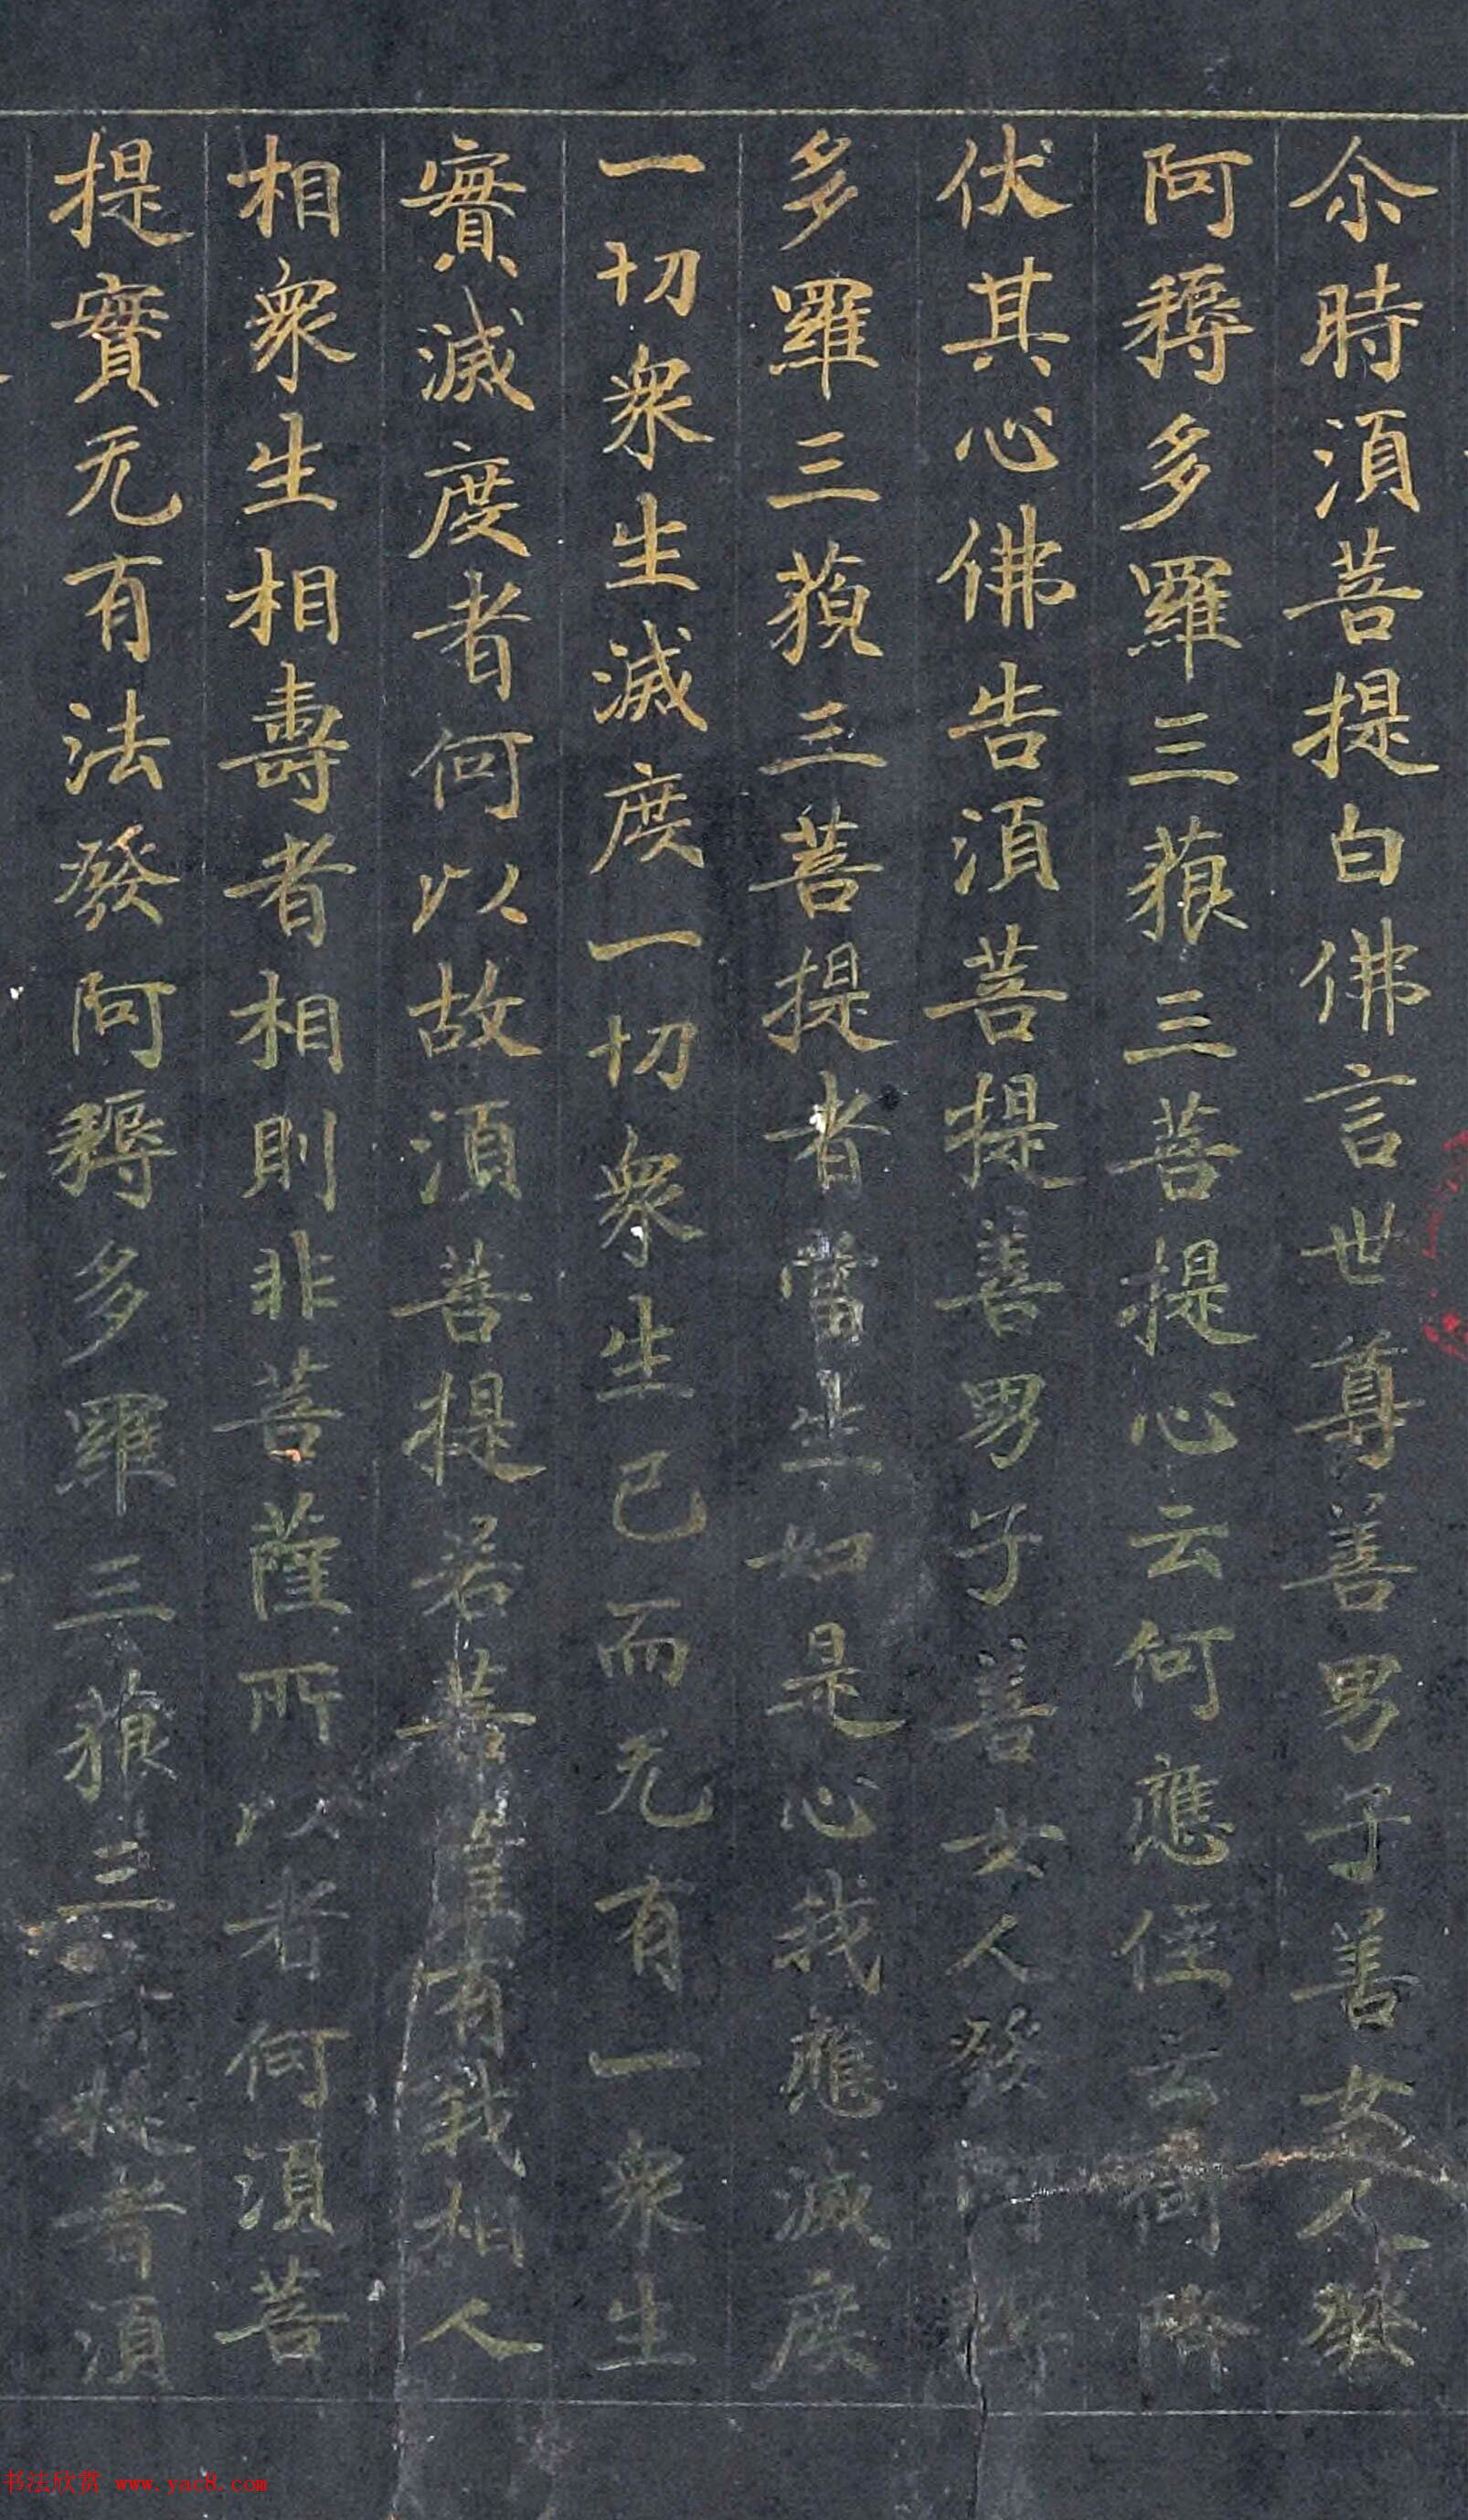 尒時湏菩提白佛言世尊善男子善女人發
阿耨多羅三藐三菩提心云何應住云何降
伏其心佛告湏菩提善男子善女人發阿耨
多羅三藐三菩提者當生如是心我應滅度
一切衆生滅度一切衆生已而无有一衆生
實滅度者何以故湏菩提若菩薩有我相人
相衆生相壽者相則非菩薩所以者何湏菩
提實无有法發阿耨多羅三藐三菩提者湏
书法欣赏 www.yac8.com